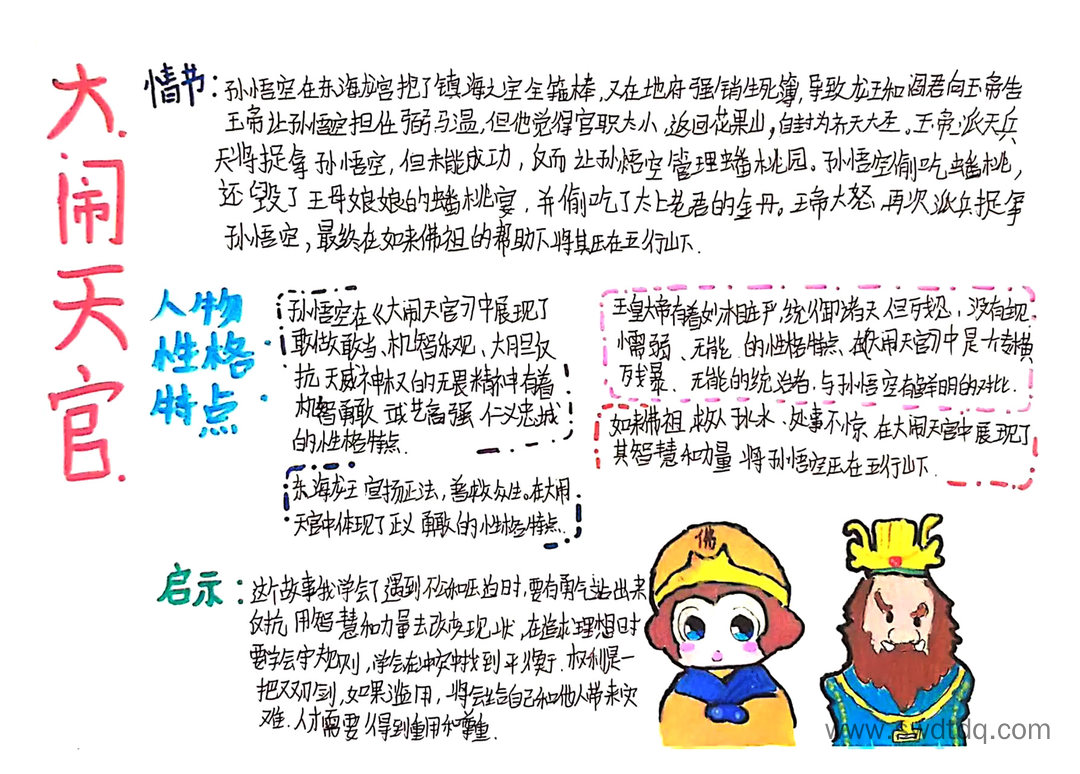 大闹天官
情节：孙悟空在东海龙宫把了镇海之宝金箍棒，又在地府强销生死簿，导致龙王和阎君向玉帝告
玉帝让孙悟空担任弼马温，但他觉得官职太小，返回花果山，自封为齐天大圣。玉帝派天兵
天将捉拿孙悟空，但未能成功，反而让孙悟空管理蟠桃园。孙悟空偷吃蟠桃，
还毁了王母娘娘的蟠桃宴，并偷吃了太上老君的金丹。玉帝大怒，再次派兵捉拿
孙悟空，最终在如来佛祖的帮助下将其压在五行山下.
人物
性格
特点：
孙悟空在《大闹天宫》中展现了
敢做敢当、机智乐观、大胆反
抗天威神权的无畏精神有着
机智勇敢 武艺高强 仁义忠诚
的性格特点.
东海龙王 宣扬正法，善救众生。在大闹
天宫中体现了正义 勇敢的性格特点.
玉皇大帝有着妙相庄严，统御诸天 但 没有
懦弱、无能 的性格特点 在《大闹天宫》中是个专横
残暴、无能的统治者，与孙悟空有鲜明的对比.
如来佛祖 处事不惊 在大闹天宫中展现了
其智慧和力量 将孙悟空压在五行山下.
启示：这个故事我学会了遇到不公和压迫时，要有勇气站出来
反抗 用智慧和力量去改变现状，在追求理想时
要学会守规则，学会在冲突中找到平衡. 权利是一
把双刃剑，如果滥用，将会给自己和他人带来灾
难. 人才需要得到重用和尊重.
佛
dtdq.com